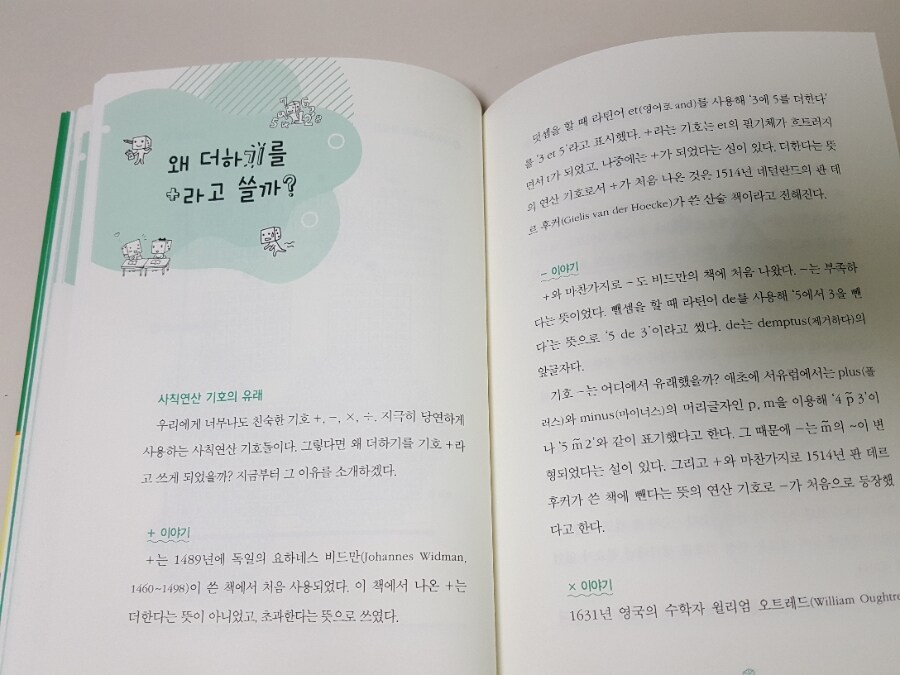 왜 더하기를
+라고 쓸까?
사칙연산 기호의 유래
우리에게 너무나도 친숙한 기호 +, -, ×, ÷. 지극히 당연하게
사용하는 사칙연산 기호들이다. 그렇다면 왜 더하기를 기호 +라
고 쓰게 되었을까? 지금부터 그 이유를 소개하겠다.
+ 이야기
+는 1489년에 독일의 요하네스 비드만(Johannes Widman,
1460~1498)이 쓴 책에서 처음 사용되었다. 이 책에서 나온 +는
더한다는 뜻이 아니었고, 초과한다는 뜻으로 쓰였다.
덧셈을 할 때 라틴어 et(영어로 and)를 사용해 '3에 5를 더한다'
를 '3 et 5'라고 표시했다. +라는 기호는 et의 필기체가 흐트러지
면서 t가 되었고, 나중에는 +가 되었다는 설이 있다. 더한다는 뜻
의 연산 기호로서 +가 처음 나온 것은 1514년 네덜란드의 판 데
르 후커(Gielis van der Hoecke)가 쓴 산술 책이라고 전해진다.
- 이야기
+와 마찬가지로 -도 비드만의 책에 처음 나왔다. -는 부족하
다는 뜻이었다. 뺄셈을 할 때 라틴어 de를 사용해 '5에서 3을 뺀
다'는 뜻으로 '5 de 3'이라고 썼다. de는 demptus(제거하다)의
앞글자다.
기호 -는 어디에서 유래했을까? 애초에 서유럽에서는 plus(플
러스)와 minus(마이너스)의 머리글자인 p, m을 이용해 '4 p̃ 3'이
나 '5 m̃ 2'와 같이 표기했다고 한다. 그 때문에 -는 m̃의 ~이 변
형되었다는 설이 있다. 그리고 +와 마찬가지로 1514년 판 데르
후커가 쓴 책에 뺀다는 뜻의 연산 기호로 -가 처음으로 등장했
다고 한다.
× 이야기
1631년 영국의 수학자 윌리엄 오트레드(William Oughtre